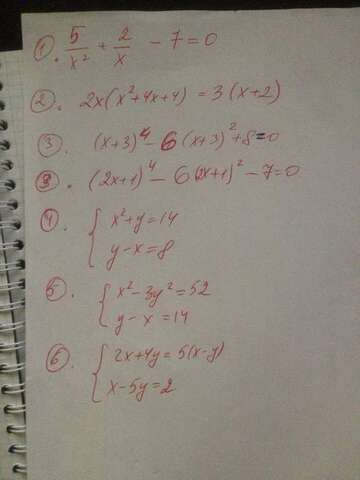 1. 5/x² + 2/x - 7 = 0
2. 2x(x²+4x+4) = 3(x+2)
3. (x+3)⁴ - 6(x+3)² + 8 = 0
3. (2x+1)⁴ - 6(2x+1)² - 7 = 0
4. { x²+y=14
y-x=8
5. { x²-3y²=52
y-x=14
6. { 2x+4y=5(x-y)
x-5y=2